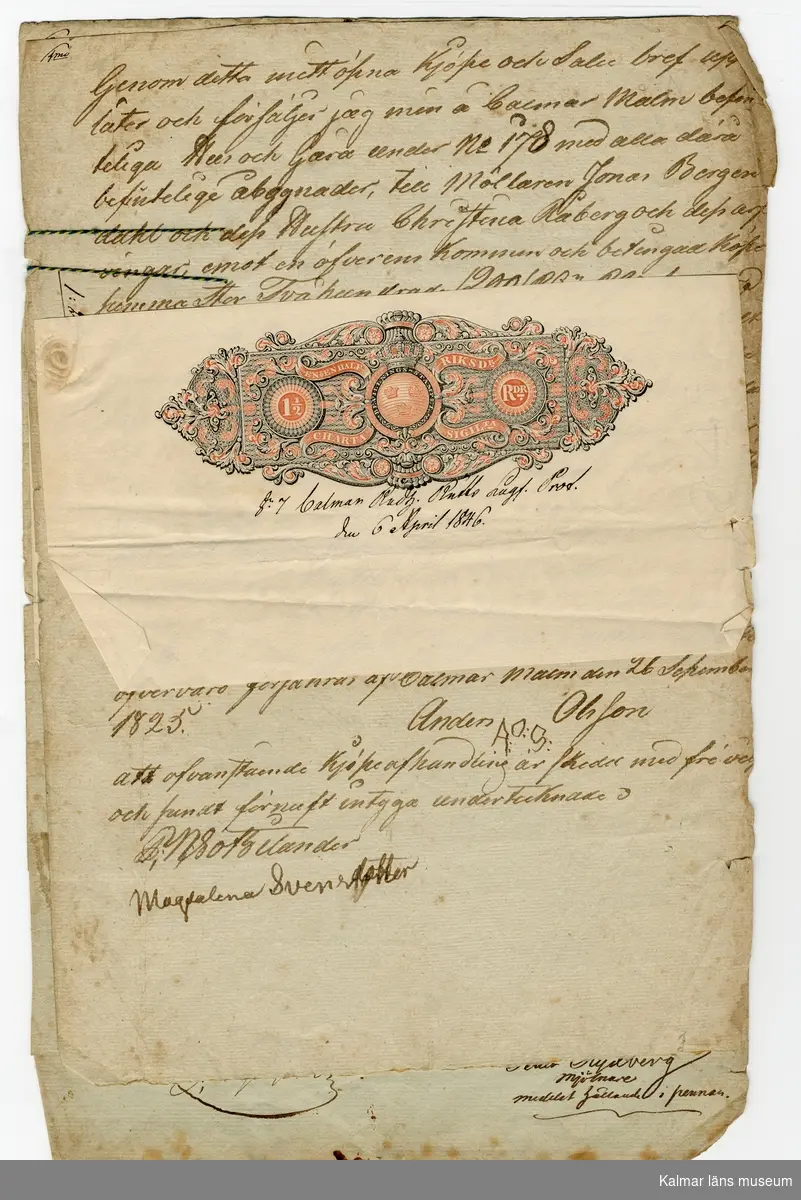 Genom detta mitt öpna Kjöpe och Salu bref upp
låter och försäljer jag min å Calmar Malm befin
teliga Hus och Gård under No 178 med alla därå
befintelige åbygnader, till Möllaren Jonas Bergen
dahl och dess Hustru Christina Råberg och dess arf
vingar, emot en öfverens kommen och betingad Köpe
summa Stor Tvåhundrade
UNIONDALE RIKSDR
1 1/2 RDR
CHARTA SIGILL
Calmar Rådh. Rätts Lagf. Prot.
den 6 April 1846.
öfvervaro försäkras af Calmar Malm den 26 September
1825. Anders Olsson
A: O: S:
att ofvanstående Kjöpeafhandling är skedd med fri vilj
och sundt förnuft intyga undertecknade
Magdalena Svensdotter
Rydberg
Mjölnare
medelst hållande i pennan.
Kalmar läns museum